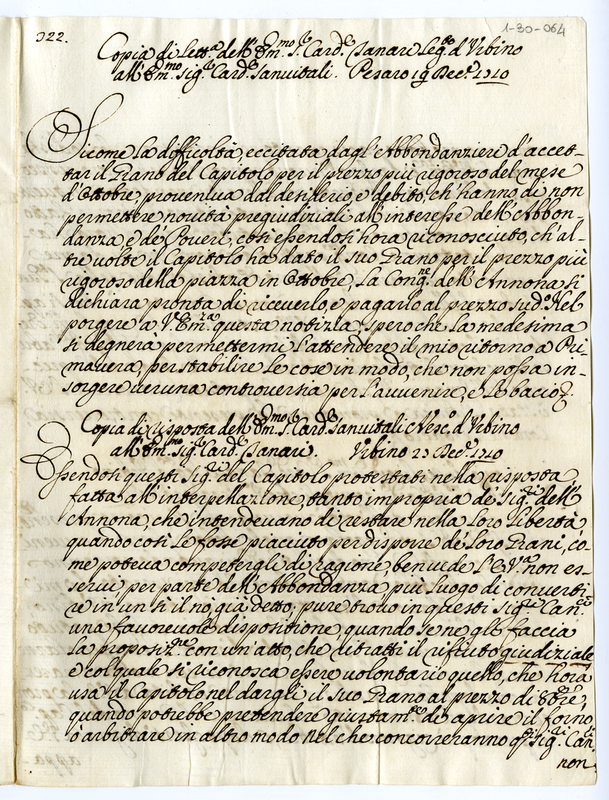 322.
1-30-064
Copia di Lett.ª dell'Em.mo S.r Card.le Tanari Leg.to d'Urbino
all'Em.mo Sig.r Card.le Sanvitali. Pesaro 19 Dec.e 1710
Sicome la difficoltà, eccitata dagl'Abbondanzieri d'accet-
tar il Grano del Capitolo per il prezzo più rigoroso del mese
d'Ottobre, proveniva dal desiderio, e debito, ch'hanno di non
permettere novità pregiudiziali all'interesse dell'Abbon-
danza, e de' Poveri, così essendosi hora riconosciuto, ch'al-
tre volte il Capitolo ha dato il suo Grano per il prezzo più
rigoroso della piazza in Ottobre, la Cong.ne dell'Annona si
dichiara pronta di riceverlo, e pagarlo al prezzo sud.º Nel
porgere a V. Em.za questa notizia, spero che la medesima
si degnerà permettermi l'attendere il mio ritorno a Pri-
mavera, per stabilire le cose in modo, che non possa in-
sorgere veruna controversia per l'avvenire, e le bacio
Copia di risposta dell'Em.mo S.r Card.le Sanvitali Vesc.º d'Urbino
all'Em.mo Sig.r Card.le Tanari. Urbino 23 Dec.e 1710
Essendosi questi Sig.ri del Capitolo protestati nella risposta
fatta all'interpellazione, tanto impropria de' Sig.ri dell'
Annona, che intendevano di restare nella loro libertà
quando così le fosse piaciuto per disporre de' loro Grani, co-
me poteva competergli di ragione, benvide l'E.V. non es-
servi per parte dell'Abbondanza più luogo di converti-
re in un sì il no, già detto; pure trovo in questi Sig.ri Can.ci
una favorevole disposizione, quando se ne gli faccia
la proposiz.ne con un'atto, che ritratti il rifiuto giudiziale
e col quale si riconosca essere volontario quello, che hora
usa il Capitolo nel dargli il suo Grano al prezzo di Ott.re,
quando potrebbe pretendere giustam.te di aprire il forno
ò arbitrare in altro modo nel che concorreranno q.ti Sig.ri Can.ci
non